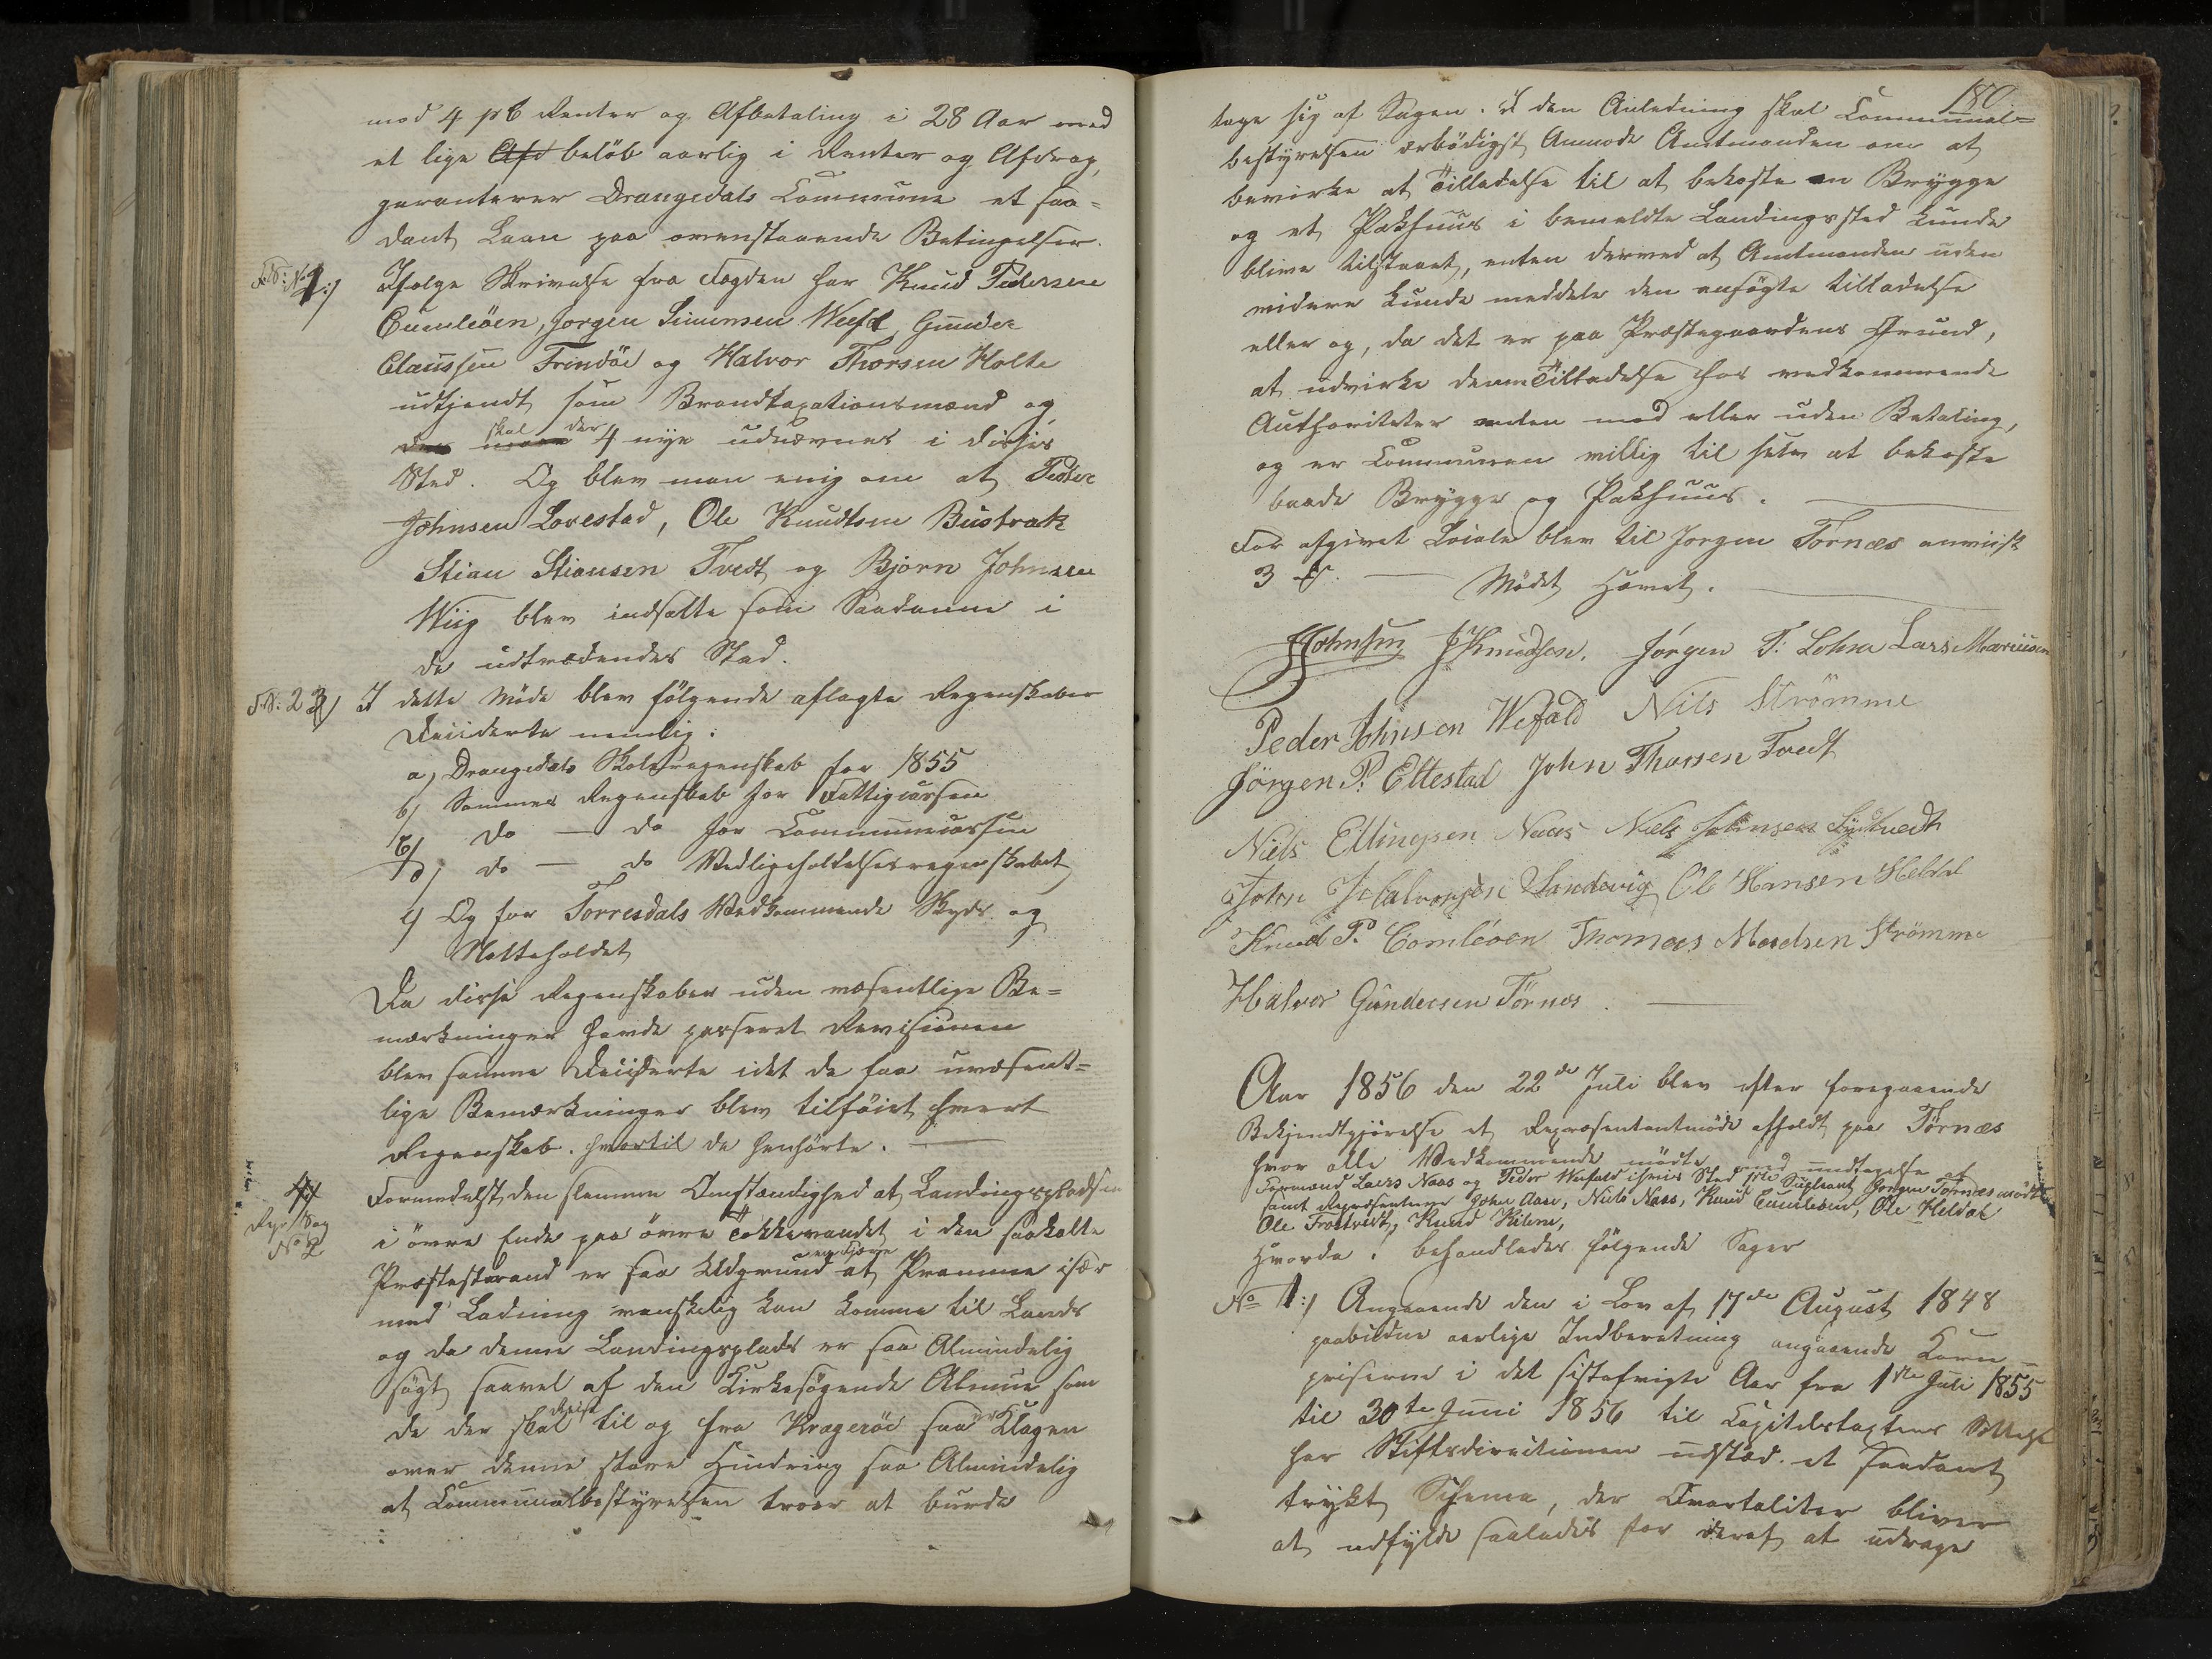 mod 4 pC Renter og Afbetaling i 28 Aar med
et lige Afd beløb aarlig i Renter og Afdrag,
garanterer Drangedals Commune et saa=
dant Laan paa ovenstaaende Betingelser.
1:/ Ifølge Skrivelse fra Fogden har Knud Pedersen
Eumleöen, Jørgen Simonsen Weefal, Gunder
Claussen Frondöe og Halvor Thorsen Holte
udtjendt som Brandtaxationsmænd og
skal der 4 nye udnævnes i disses
Sted. Og blev man enig om at Peder
Johnsen Lovestad, Ole Knudtsen Bustrak
Stian Stiansen Tvedt og Bjørn Johnsen
Wiig blev indsatte som Saadanne i
de udtrædendes Sted.
I dette Møde blev følgende aflagte Regnskaber
Deciderte nemlig:
a, Drangedals Skoleregnskab for 1855
b/ Sammes Regnskab for Fattigcassen
c/ do — do for Communecassen
d/ do — do Vedligeholdelsesregnskabet
e/ Og for Torresdals Vedkommende Skyds og
Molteholdet
Da disse Regnskaber uden væsentlige Be=
mærkninger havde passeret Revisionen
blev samme Deciderte idet de faa uvæsent=
lige Bemærkninger blev tilføiet hvert
Regnskab hvortil de henhørte.
Repr Sag
No 2
Formedelst den slemme Omstændighed at Landingspladsen
i övre Ende paa övre Tokkevandet i den saakalte
Præstestrand er saa Udgrund at Pramme især
med Ladning vanskelig kan komme til Lands
og da denne Landingsplads er saa Almindelig
søgt saavel af den Kirkesøgende Almue som
de der skal reise til og fra Kragerøe saa er Klagen
over denne store Hindring saa Almindelig
at Communalbestyrelsen troer at burde
180
tage sig af Sagen. I den Anledning skal Communal=
bestyrelsen ærbödigst Anmode Amtmanden om at
bevirke at Tilladelse til at bekoste en Brygge
og et Pakhuus i bemeldte Landingssted kunde
blive tilstaaet, enten derved at Amtmanden uden
videre kunde meddele den ansøgte tilladelse
eller og, da det er paa Præstegaardens Grund,
at udvirke denne Tilladelse hos vedkommende
Authoriteter enten med eller uden Betaling,
og er Communen villig til selv at bekoste
baade Brygge og Pakhuus.
For afgivet Locale blev til Jørgen Tørnæs anviist
3 — Mødet Hævet.
JJohnsen JKnudsen. Jørgen T: Lohne Lars Mariusen
Peder Johnsen Wefald Nils Strömme
Jörgen P. Ettestad John Thorsen Tvedt
Niels Ellingsen Naas Niels Johnsen
John Halvorsen Sandvig Ole Hansen Heldal
Knud P. Comleøen Thomas Madsen Strömme
Halvor Gundersen Törnes.
Aar 1856 den 22de Juli blev efter foregaaende
Bekjendtgjørelse et Repræsentantmøde afholdt paa Tørnæs
hvor alle Vedkommende mødte med undtagelse af
Formand Lars Naas og Peder Wefald i hvis Sted 1ste Supleant Jørgen Tørnæs mødte
samt Repræsentanterne John Aase, Niels Naas, Knud Eumleøen, Ole Heldal
Ole Trostvedt, Knud Kilen,
Hvorda behandledes følgende Sager
No 1:/ Angaaende den i Lov af 17de August 1848
paabudne aarlige Indberetning angaaende Korn
priserne i det sistafvigte Aar fra 1ste Juli 1855
til 30te Juni 1856 til Capitelstaxtens
har Stiftsdirectionen udstæd. et saadant
trykt Schema, der Qvartaliter bliver
at udfylde saaledes for deraf at uddrage